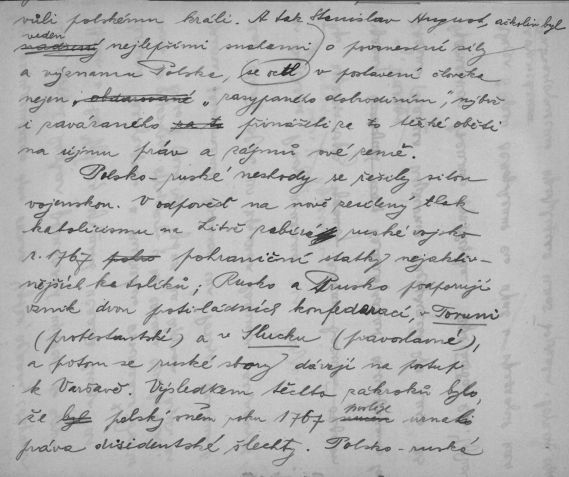 vůli polskému králi. A tak Stanislav August, ačkoliv byl
veden nejlepšími snahami o povznesení síly
a významu Polska, se octl v postavení člověka
nejen „obdarované „zasypaného dobrodiním“, nýbrž
i zavázaného za to přinášeti za to těžké oběti
na újmu práv a zájmů své země.
Polsko-ruské neshody se řešily silou
vojenskou. V odpověď na nově zesílený tlak
katolicismu na Litvě zabírá ruské vojsko
r. 1767 pohraniční statky nejaktiv-
nějších katolíků; Rusko a Prusko podporují
vznik dvou protivládních konfederací, v Toruni
(protestantské) a v Slucku (pravoslavné),
a potom se ruské sbory dávají na postup
k Varšavě. Výsledkem těchto zákroků bylo,
že byl polský sněm roku 1767 uznati
práva disidentské šlechty. Polsko-ruské